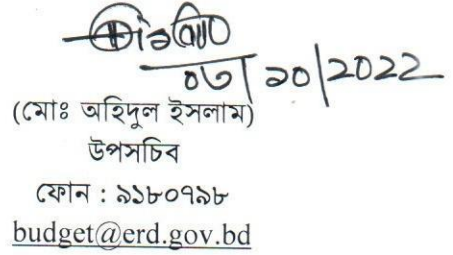 ০৩/১০/2022
(মোঃ অহিদুল ইসলাম)
উপসচিব
ফোন : ৯১৮০৭৯৮
budget@erd.gov.bd